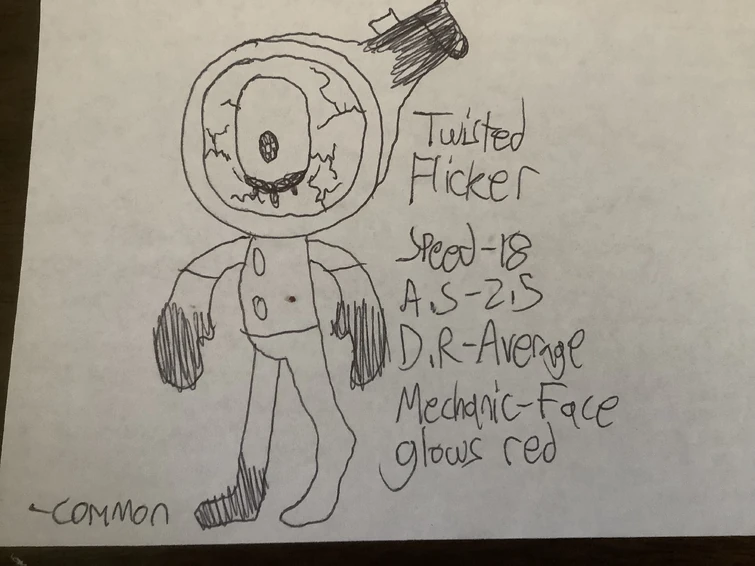 Twisted
Flicker
Speed-18
A.S-2.5
D.R-Average
Mechanic-Face
glows red
-COMMON